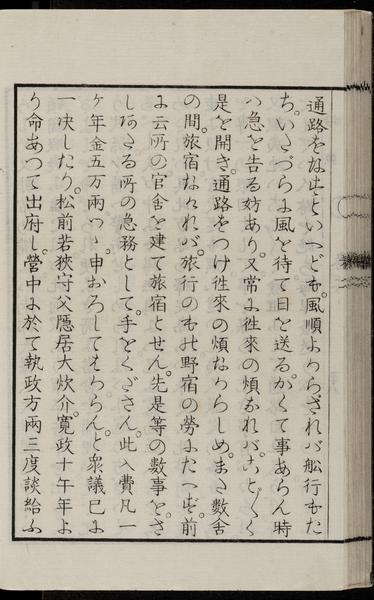 通路をなすといへども。風順よからざれバ舩行もた
ち。いたづらに風を待て日を送る。かくて事あらん時
ハ急を告る妨あり。又常に徃來の煩なれバ。こと〴〵く
是を開き。通路をつけ徃來の煩なからしめ。また數舎
の間。旅宿なけれバ。旅行のもの野宿の勞にたへず。前
に云所の官舎を建て旅宿とせん。先是等の數事を。さ
しあたる所の急務として。手をくださん。此入費凡一
ケ年金五万兩づゝ。申おろしてはからんと。衆議已に
一决したり。松前若狹守父隱居大炊介。寛政十午年よ
り命あつて出府し。營中に於て執政方兩三度談給ふ